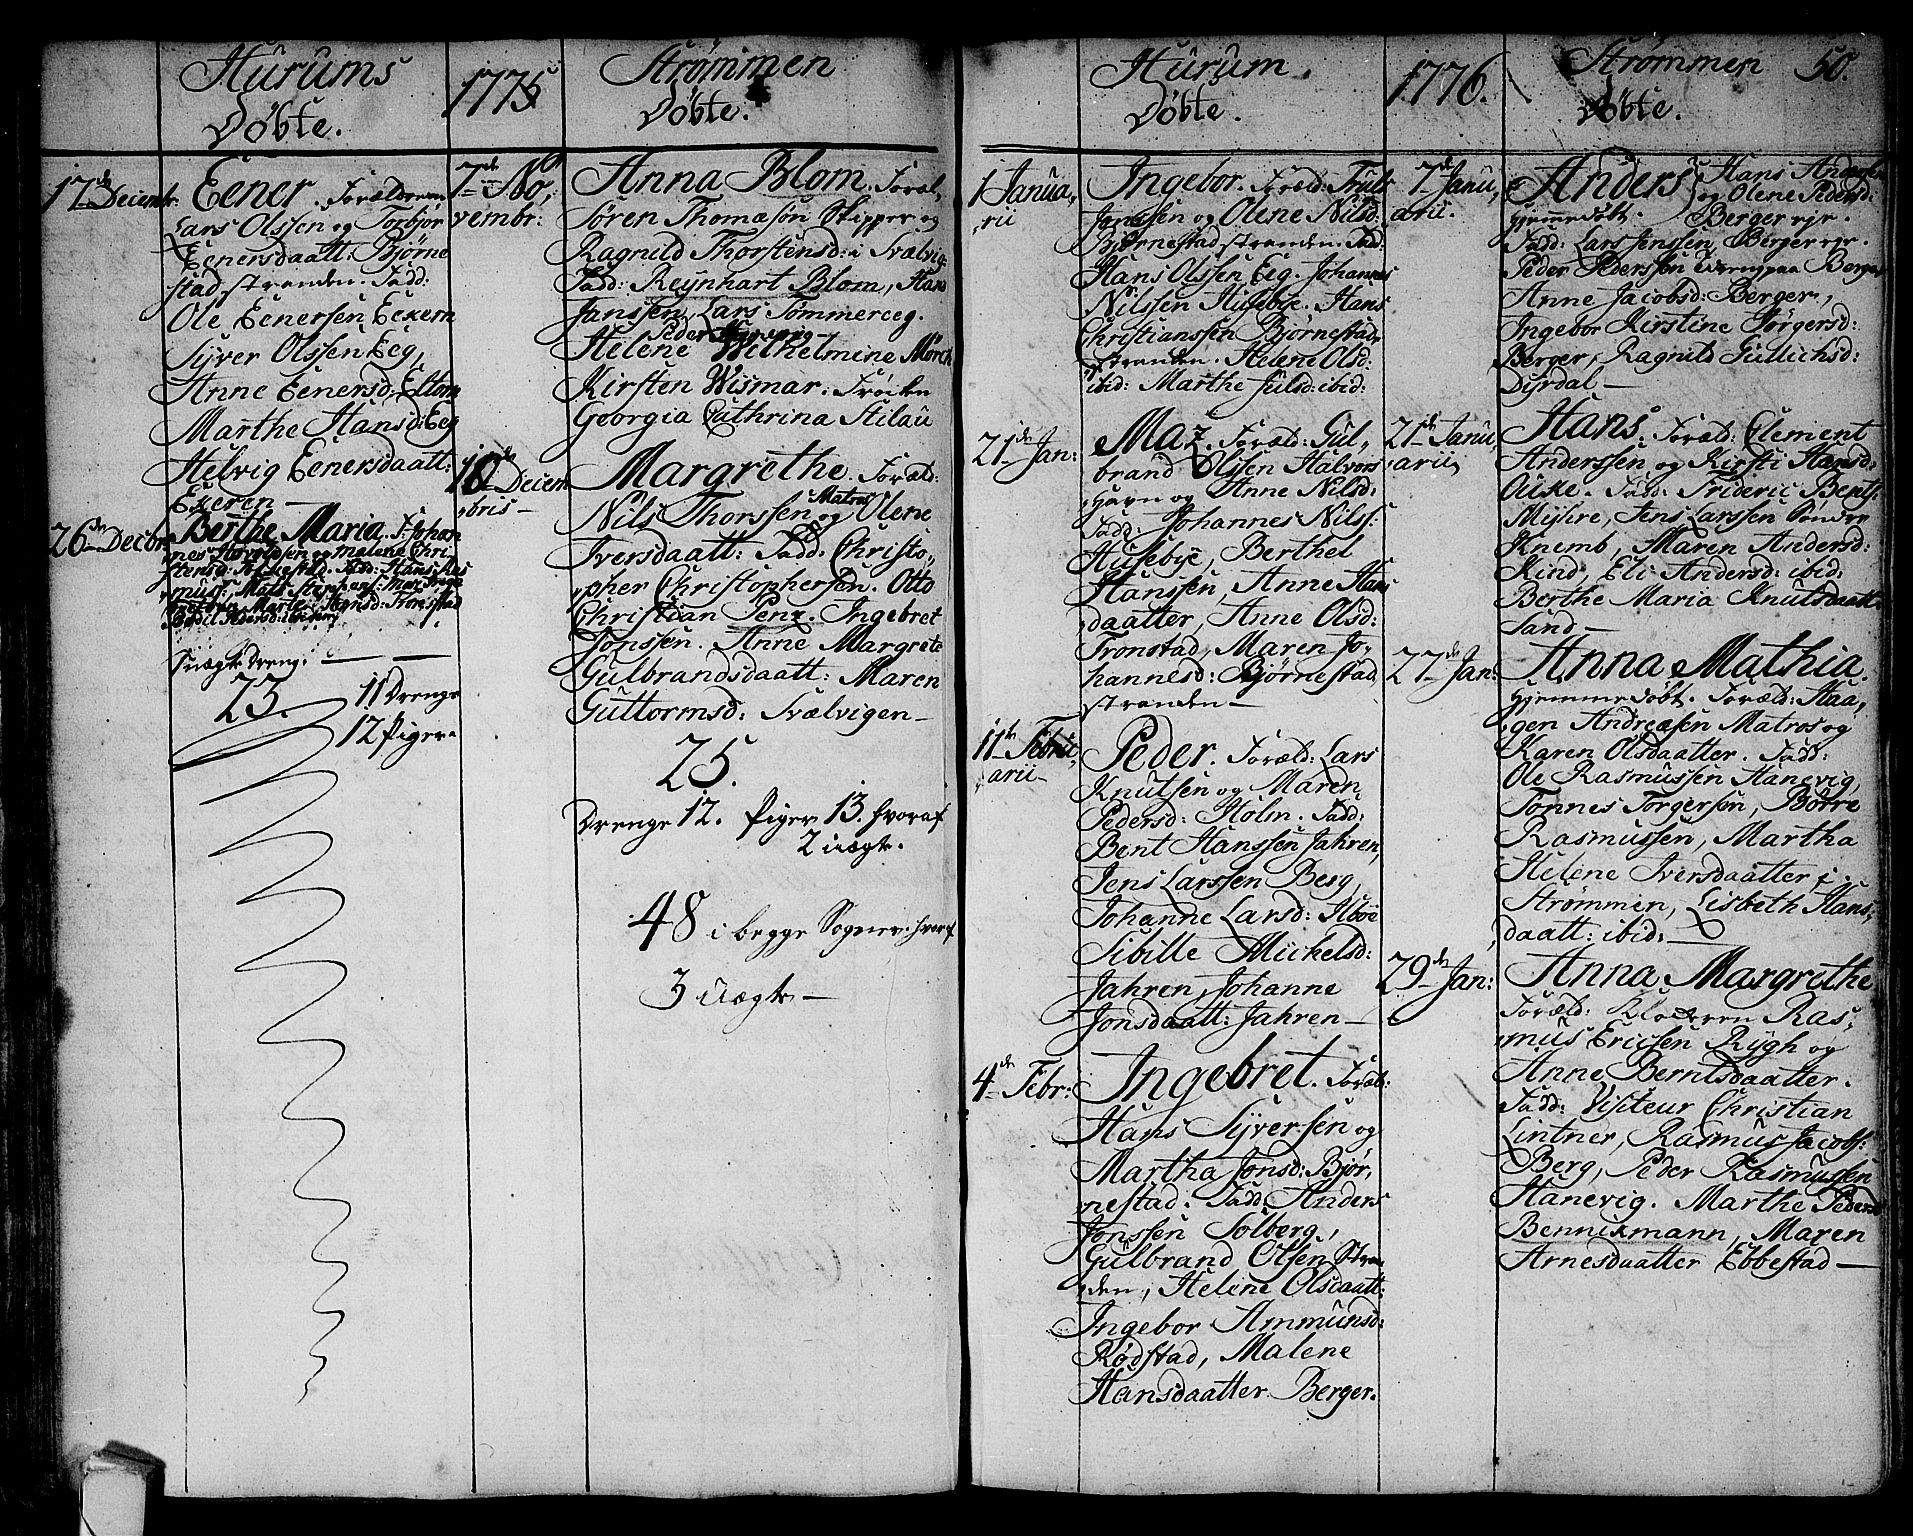 Hurums
Døbte.
1775
Strømmen
Døbte.
17de Decembr:
Eener. Forældrene
Lars Olssen og Torbjor
Eenersdaatt: Bjørne
stad stranden. Fadd:
Ole Eenersen Eckern
Syver Olssen Eeg,
Anne Eenersd, Eltom
Marthe Hansd: Eeg
Helvig Eenersdaatt:
Ekeren
26de Decbr:
Berthe Maria. F: Johan
nes og Malene Chri
stensd: Fadd: Hans Ras
muss: Mats
Bodil Pedersd:
Uægte Dreng. 1.
23.
11 Drenge
12 Piger
7de No,
vembr:
Anna Blom. Foræl,
Søren Thomæsøn Skipper og
Ragnild Thorstensd: i Svælvig
Fadd: Reijnhart Blom, Hans
Janssen, Lars Tømmereeg.
Peder
Helene Wilhelmine Mørch
Kirsten Wismar. Frøcken
Georgia Cathrina Stilau
10de Decem
bris
Margrethe. Foræld:
Nils Thorssen Matros og Olene
Iversdaatt: Fadd: Christo,
pher Christophersen. Otto
Christian Penz. Ingebret
Jonssen. Anne Margrete
Gulbrandsdaatt: Maren
Guttormsd: Svælvigen
25.
Drenge 12. Piger 13. hvoraf
2 uægte.
48 i begge Sogner. hvoraf
3 Uægte
Hurum
Døbte.
1776.
Strømmen
Døbte.
50.
1 Janua,
rii
Ingebor. Foræld: Truls
Jonssen og Olene Nilsd:
Bjørnestadstranden. Fadd:
Hans Olssen Eeg. Johannes
Nilssen Husebye. Hans
Christianssen Bjørnestad,
stranden. Helene Olsd:
ibid: Marthe Juelsd: ibid:
21de Jan:
Maz. Foræld: Gul,
brand Olssen Halvors
havn og Anne Nilsd:
Fadd: Johannes Nilss:
Husebye, Berthel
Hanssen, Anne Hans
daatter, Anne Olsd:
Tronstad, Maren Jo,
hannesd: Bjørnestad
stranden
11te Febru,
arii
Peder. Foræld: Lars
Knutsen og Maren
Pedersd: Holm. Fadd:
Bent Hanssen Jahren,
Jens Larssen Berg,
Johanne Larsd: Ilboe
Sibille Michelsd:
Jahren, Johanne
Jonsdaatt: Jahren
4de Febr:
Ingebret. Foræld:
Hans Syversen og
Martha Jonsd: Bjør,
nestad. Fadd: Anders
Jonssen Solberg,
Gulbrand Olssen Stran,
den, Helene Olsdaatt:
Ingebor Ammunsd:
Rødstad, Malene
Hansdaatter Berger.
7de Janu,
arii.
Anders Hans Anderssen
og Olene Pedersd:
hjemmedøbt. Berger eje.
Fadd: Lars Jenssen, Berger eje.
Peder Pederssen Berger
Anne Jacobsd: Berger,
Ingebor Kirstine Jørgersd:
Berger, Ragnild Gullichsd:
Dyrdal
21de Janu,
arii
Hans. Foræld: Clement
Anderssen og Kirsti Hansd:
Fadd: Frideric Bents:
Myhre, Jens Larssen Sønder
Knemb, Maren Andersd:
Kind, Eli Andersd: ibid:
Berthe Maria Knutsdaatt:
Sand
27de Jan:
Anna Mathia.
hjemmedøbt. Foræld: Haa,
gen Andreæsen Matros og
Karen Olsdaatter. Fadd:
Ole Rasmussen Hanevig,
Tønnes Torgersøn, Børre
Rasmussen, Martha
Helene Iversdaatter i
Strømmen, Lisbeth Hans,
daatt: ibid:
29de Jan:
Anna Margrethe
Foræld: Klokeren Ras,
mus Ericsen Rygh og
Anne Berntsdaatter.
Fadd: Visiteur Christian
Lintner, Rasmus Jacobs:
Berg, Peder Rasmussen
Hanevig. Marthe Pedersd
Bennikmann, Maren
Arnesdaatter Ebbestad